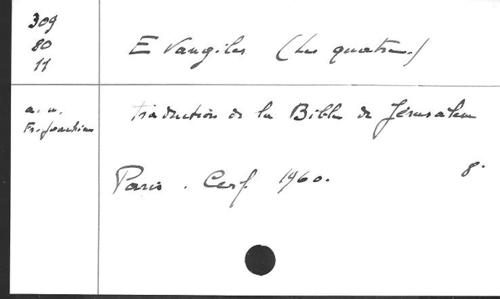 309
80
11
Evangiles (Les quatre.)
a. u.
Fr.
Traduction de la Bible de Jérusalem
Paris. Cerf 1960. 8.